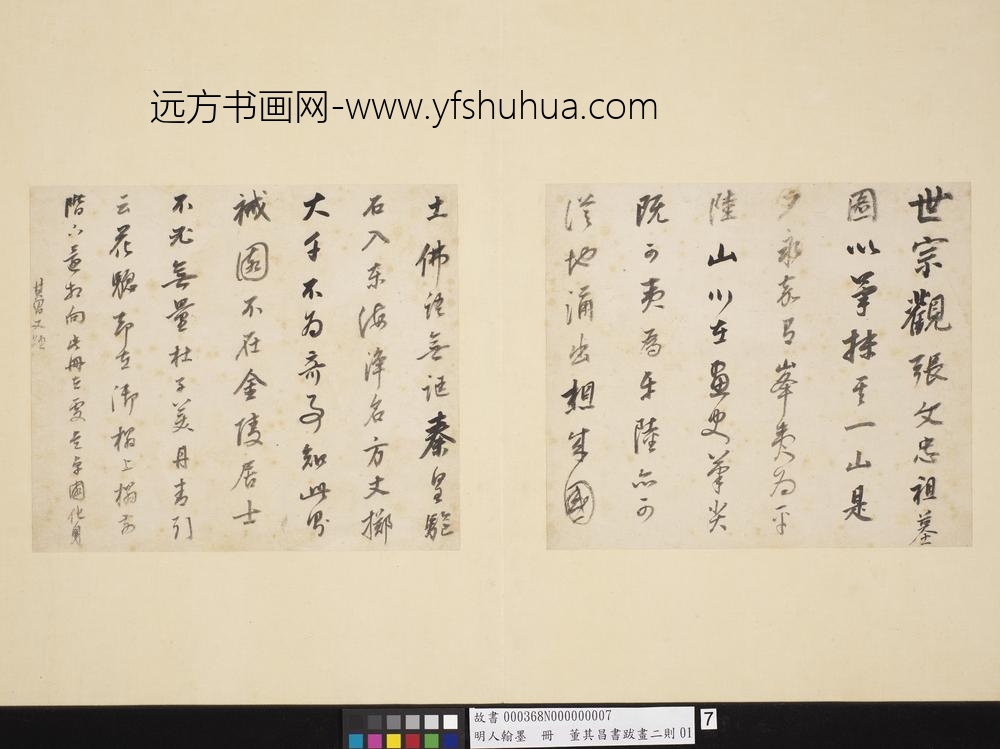 远方书画网-www.yfshuhua.com
世宗觀張文忠祖墓
圖以筆抹其一山是
夕永嘉有峯夷為平
陸山川在畫史筆尖
既可夷為平陸亦可
從地涌出想成國
土佛語無誑秦皇驅
石入東海淨名方丈擲
大千不為奇事知此則
祴園不在金陵居士
不死無量杜子美丹青引
云花驄却在御榻上榻前
階下 向此冊
其昌又題
故書 000368N000000007
明人翰墨 冊 董其昌書跋畫二則 01
7